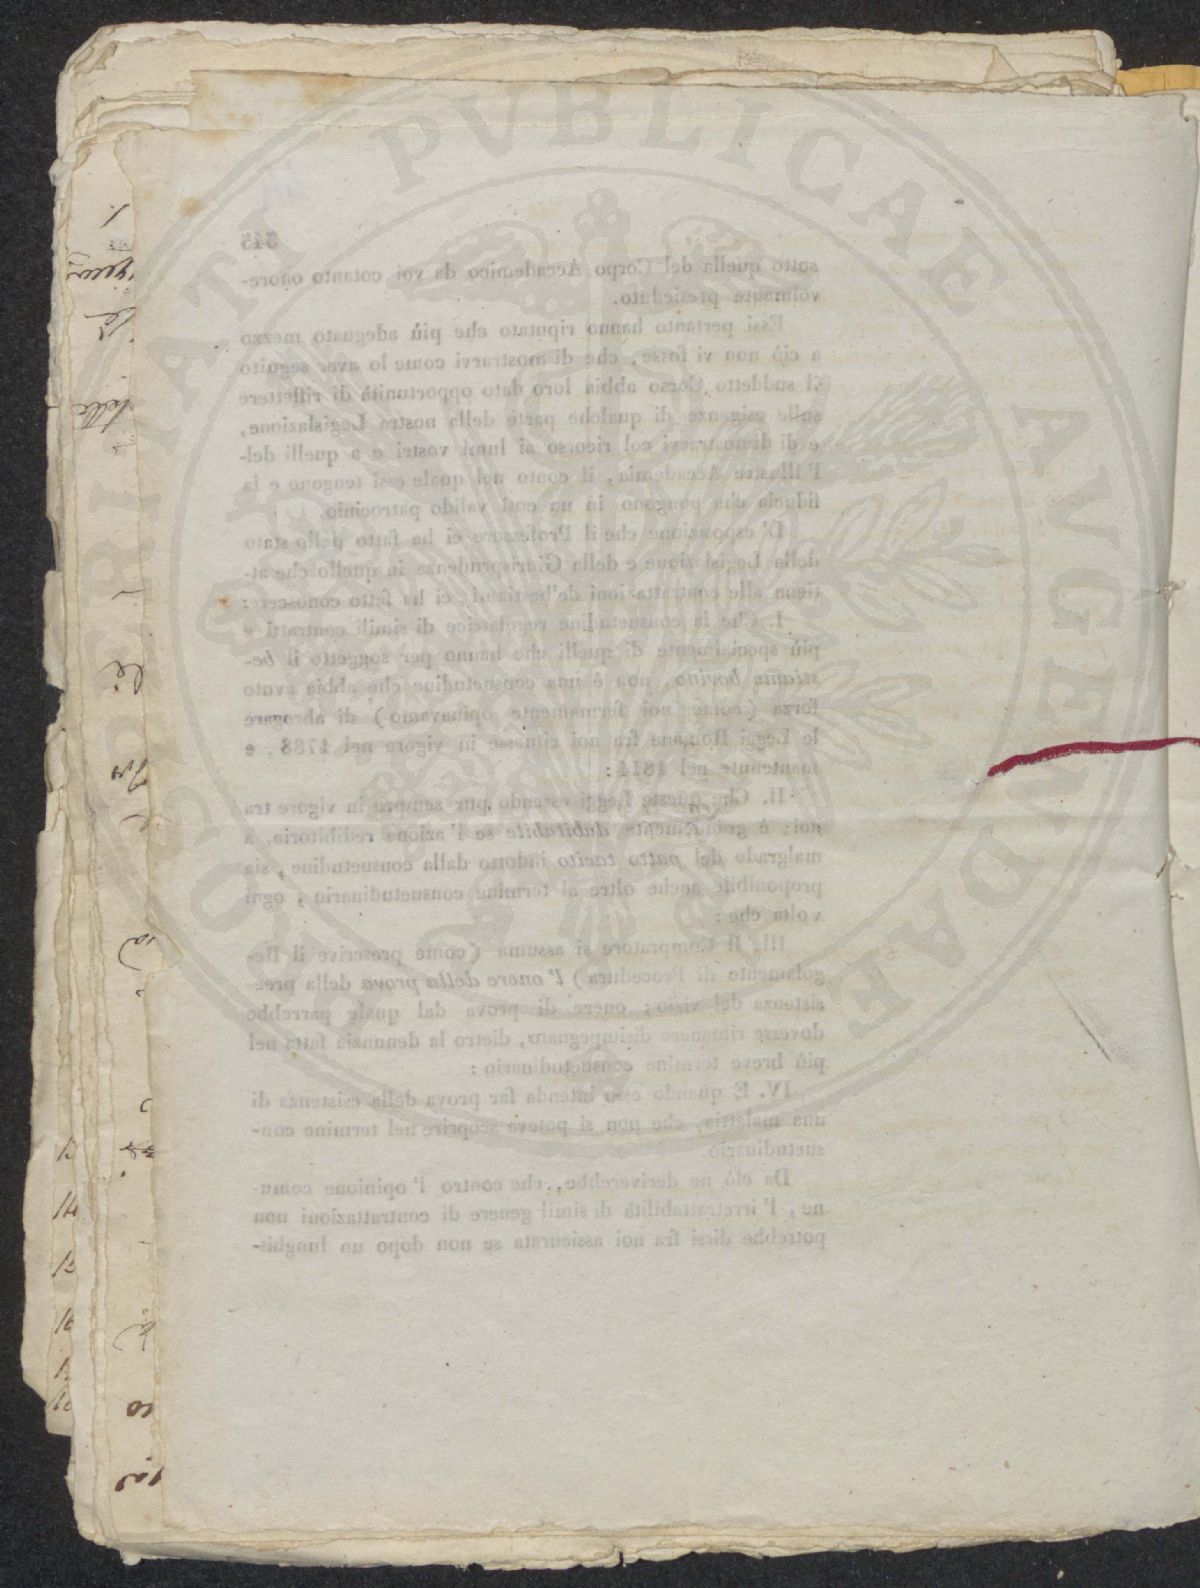 343
sotto quella del Corpo Accademico da voi cotanto onore-
volmente presieduto.
Essi pertanto hanno riputato che più adeguato mezzo
a ciò non vi fosse, che di mostrarvi come lo aver seguito
il suddetto Corso abbia loro dato opportunità di riflettere
sulle esigenze di qualche parte della nostra Legislazione,
e di dimostrarvi col ricorso ai lumi vostri e a quelli del-
l' illustre Accademia, il conto nel quale essi tengono e la
fiducia che pongono in un così valido patrocinio.
L' esposizione che il Professore ci ha fatto dello stato
della Legislazione e della Giurisprudenza in quello che at-
tiene alle contrattazioni de' bestiami, ci ha fatto conoscere:
I. Che la consuetudine regolatrice di simili contratti e
più specialmente di quelli che hanno per soggetto il be-
stiame bovino, non è una consuetudine che abbia avuto
forza (come noi fermamente opinavamo) di abrogare
le Leggi Romane fra noi rimesse in vigore nel 1788. e
mantenute nel 1814:
II. Che queste Leggi essendo pur sempre in vigore tra
noi; è grandemente dubitabile se l' azione redibitoria, a
malgrado del patto tacito indotto dalla consuetudine, sia
proponibile anche oltre al termine consuetudinario; ogni
volta che:
III. Il Compratore si assuma (come prescrive il Re-
golamento di Procedura) l' onere della prova della pree-
sistenza del vizio; onere di prova dal quale parrebbe
dovesse rimanere disimpegnato, dietro la denunzia fatta nel
più breve termine consuetudinario:
IV. E quando esso intenda far prova della esistenza di
una malattia, che non si poteva scoprire nel termine con-
suetudinario.
Da ciò ne deriverebbe, che contro l' opinione comu-
ne, l' irretrattabilità di simil genere di contrattazioni non
potrebbe dirsi fra noi assicurata se non dopo un lunghis-
PVBLICAE AVGENDAE